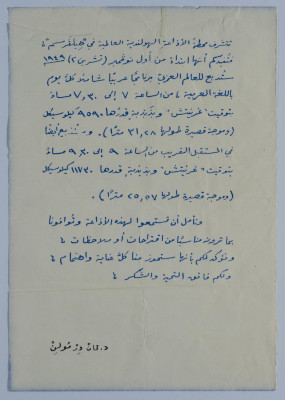 تتشرف محطة الأذاعة الهولندية العالمية في "هيلفرسم" ٤
تفيدكم أنها ابتداءً من أول نوفمبر (تشرين ٢) ١٩٤٩
ستذيع للعالم العربي برنامجاً عربيًا شاملاً كل يوم
باللغة العربية ٤ من الساعة ٧ إلى ٧،٣٠ مساءً
بتوقيت "غرنيتش" وبذبذبة قدرها ٩٥٩٠ كيلوسيكل
(وموجة قصيرة طولها ٣١،٢٨ مترًا). وستذيع أيضًا
في المستقبل القريب من الساعة ٩ إلى ٩،٣٠ مساءً
بتوقيت "غرنيتش" وبذبذبة قدرها ١١٧٣٠ كيلوسيكل
(وموجة قصيرة طولها ٢٥،٥٧ مترًا).
ونأمل أن تستمعوا لهذه الأذاعة وتوافونا
بما ترونه مناسبًا من اقتراحات أو ملاحظات ٤
ونؤكد لكم بأنها ستحوز منا كل عناية واهتمام ٤
ولكم فائق التحية والشكر ٤
د.